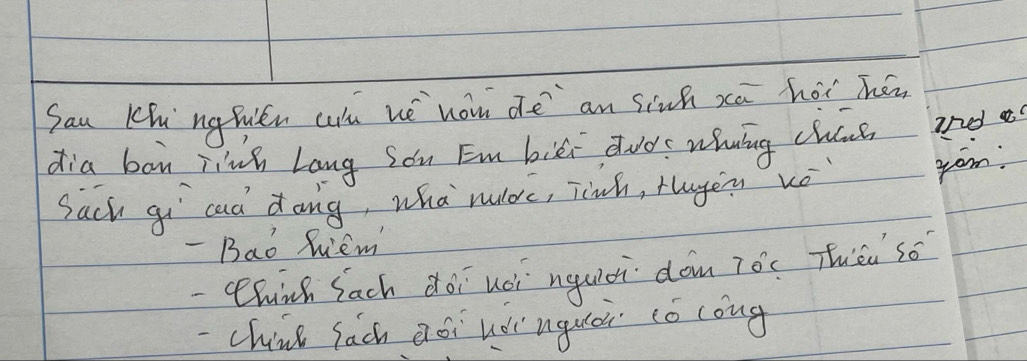 Sau khi nghiên cứu về vấn đề an sinh xã hội trên
địa bàn Tỉnh Lạng Sơn Em biết được những chính
sách gì của đảng, nhà nước, Tỉnh, Huyện về
- Bảo hiểm
- Chính sách đối với người dân Tộc Thiểu số
- Chính sách đối với người có công